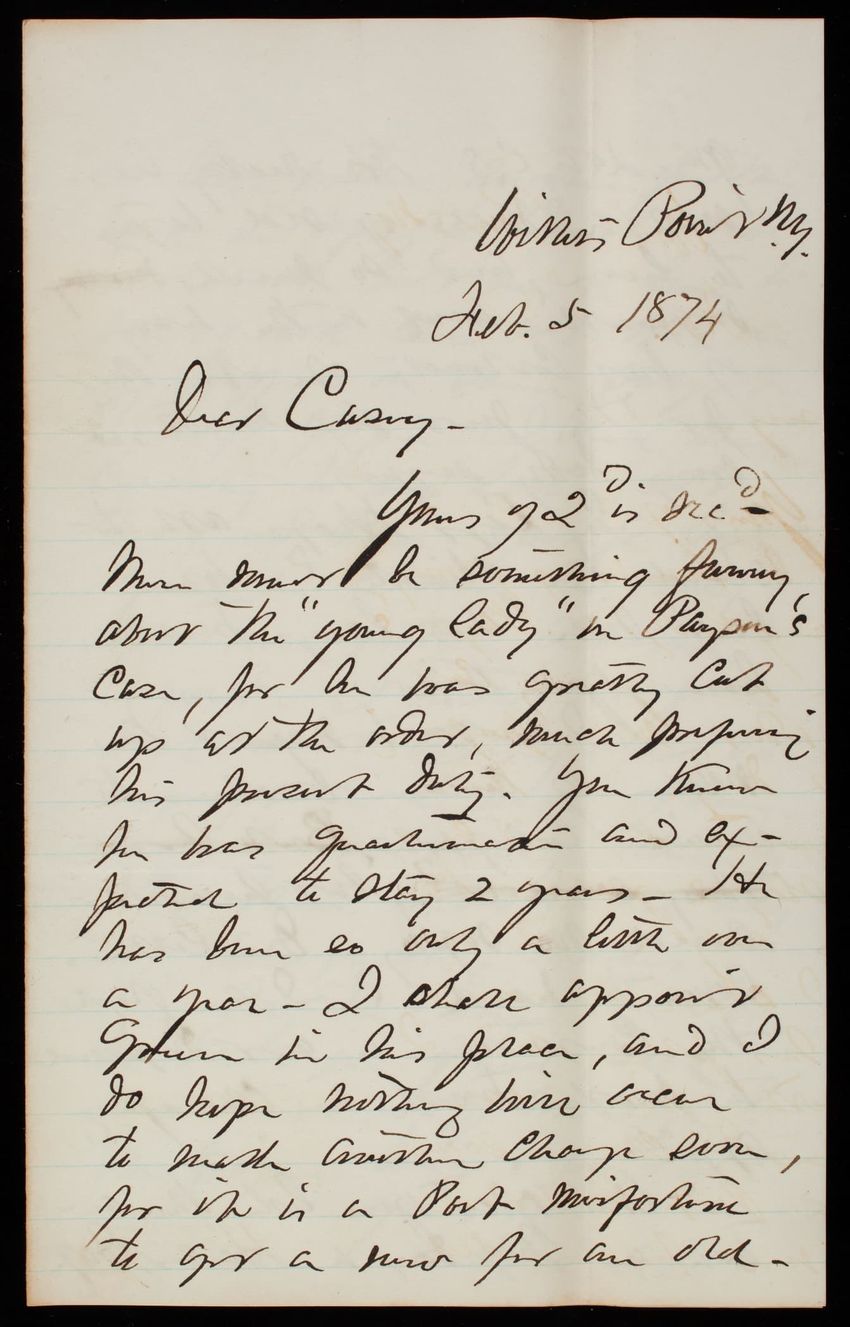 Willets Point N.Y.
Feb. 5 1874
Dear Casey -
Yours of 2d is recd -
There must be something funny
about the "young lady" in Payson's
case, for he was greatly cut
up at the order, much prefering
his present duty. You know
he was quartermaster and ex-
pected to stay 2 years - He
has been so only a little over
a year - I shall appoint
Green in his place, and I
do hope nothing will occur
to make another change soon,
for it is a Post misfortune
to get a new for an old -